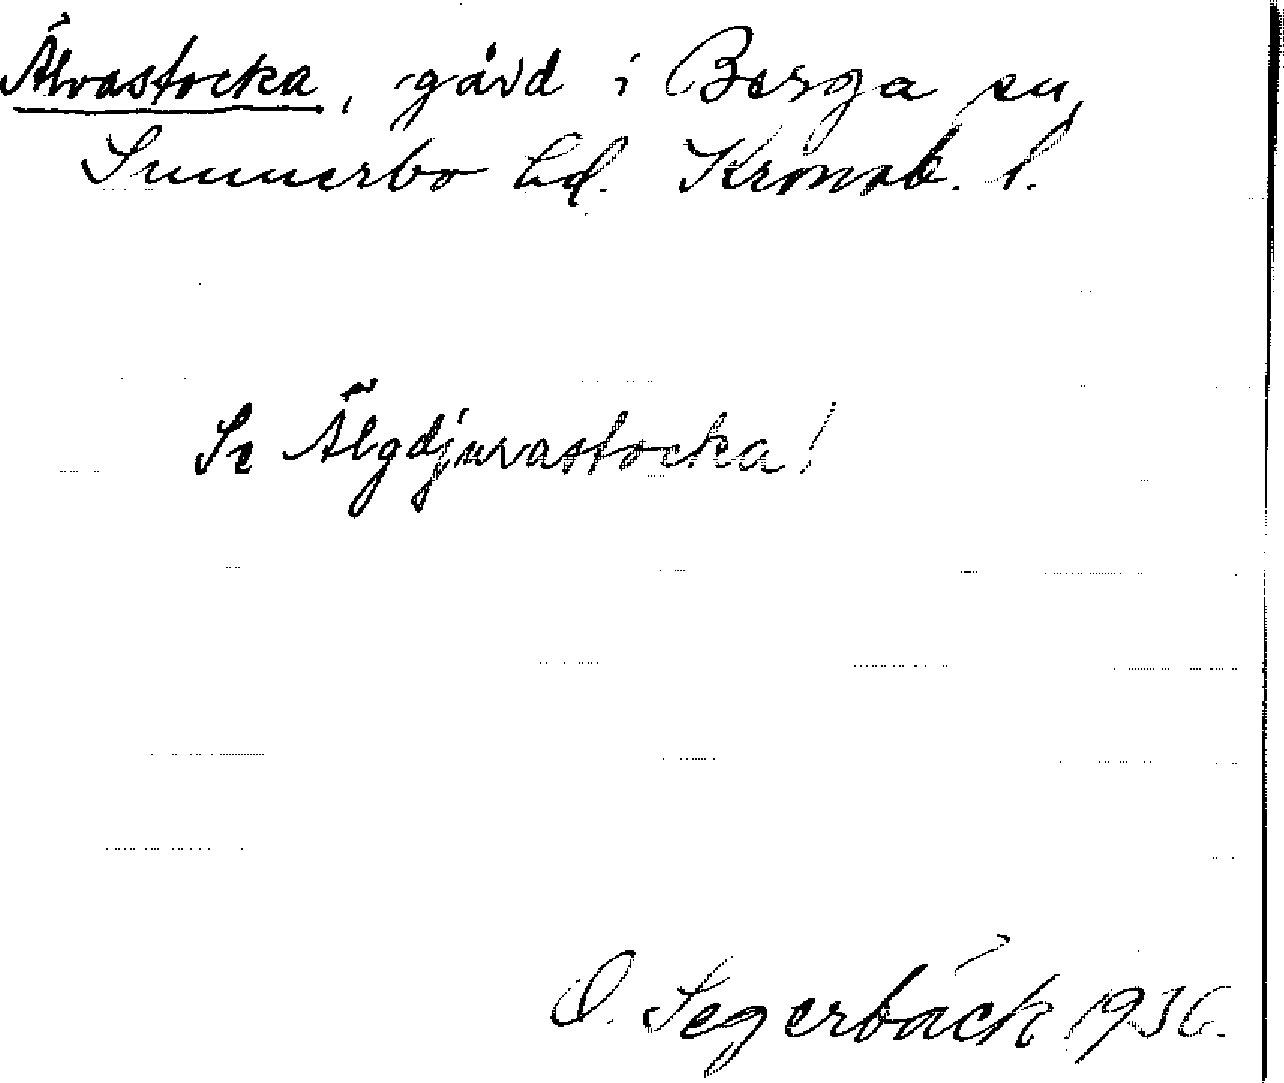 Älvastocka, gård i Berga sn,
Sunnerbo hd. Kronob. l.
Se Älgdjurastocka!
O. Segerbäck 1936.